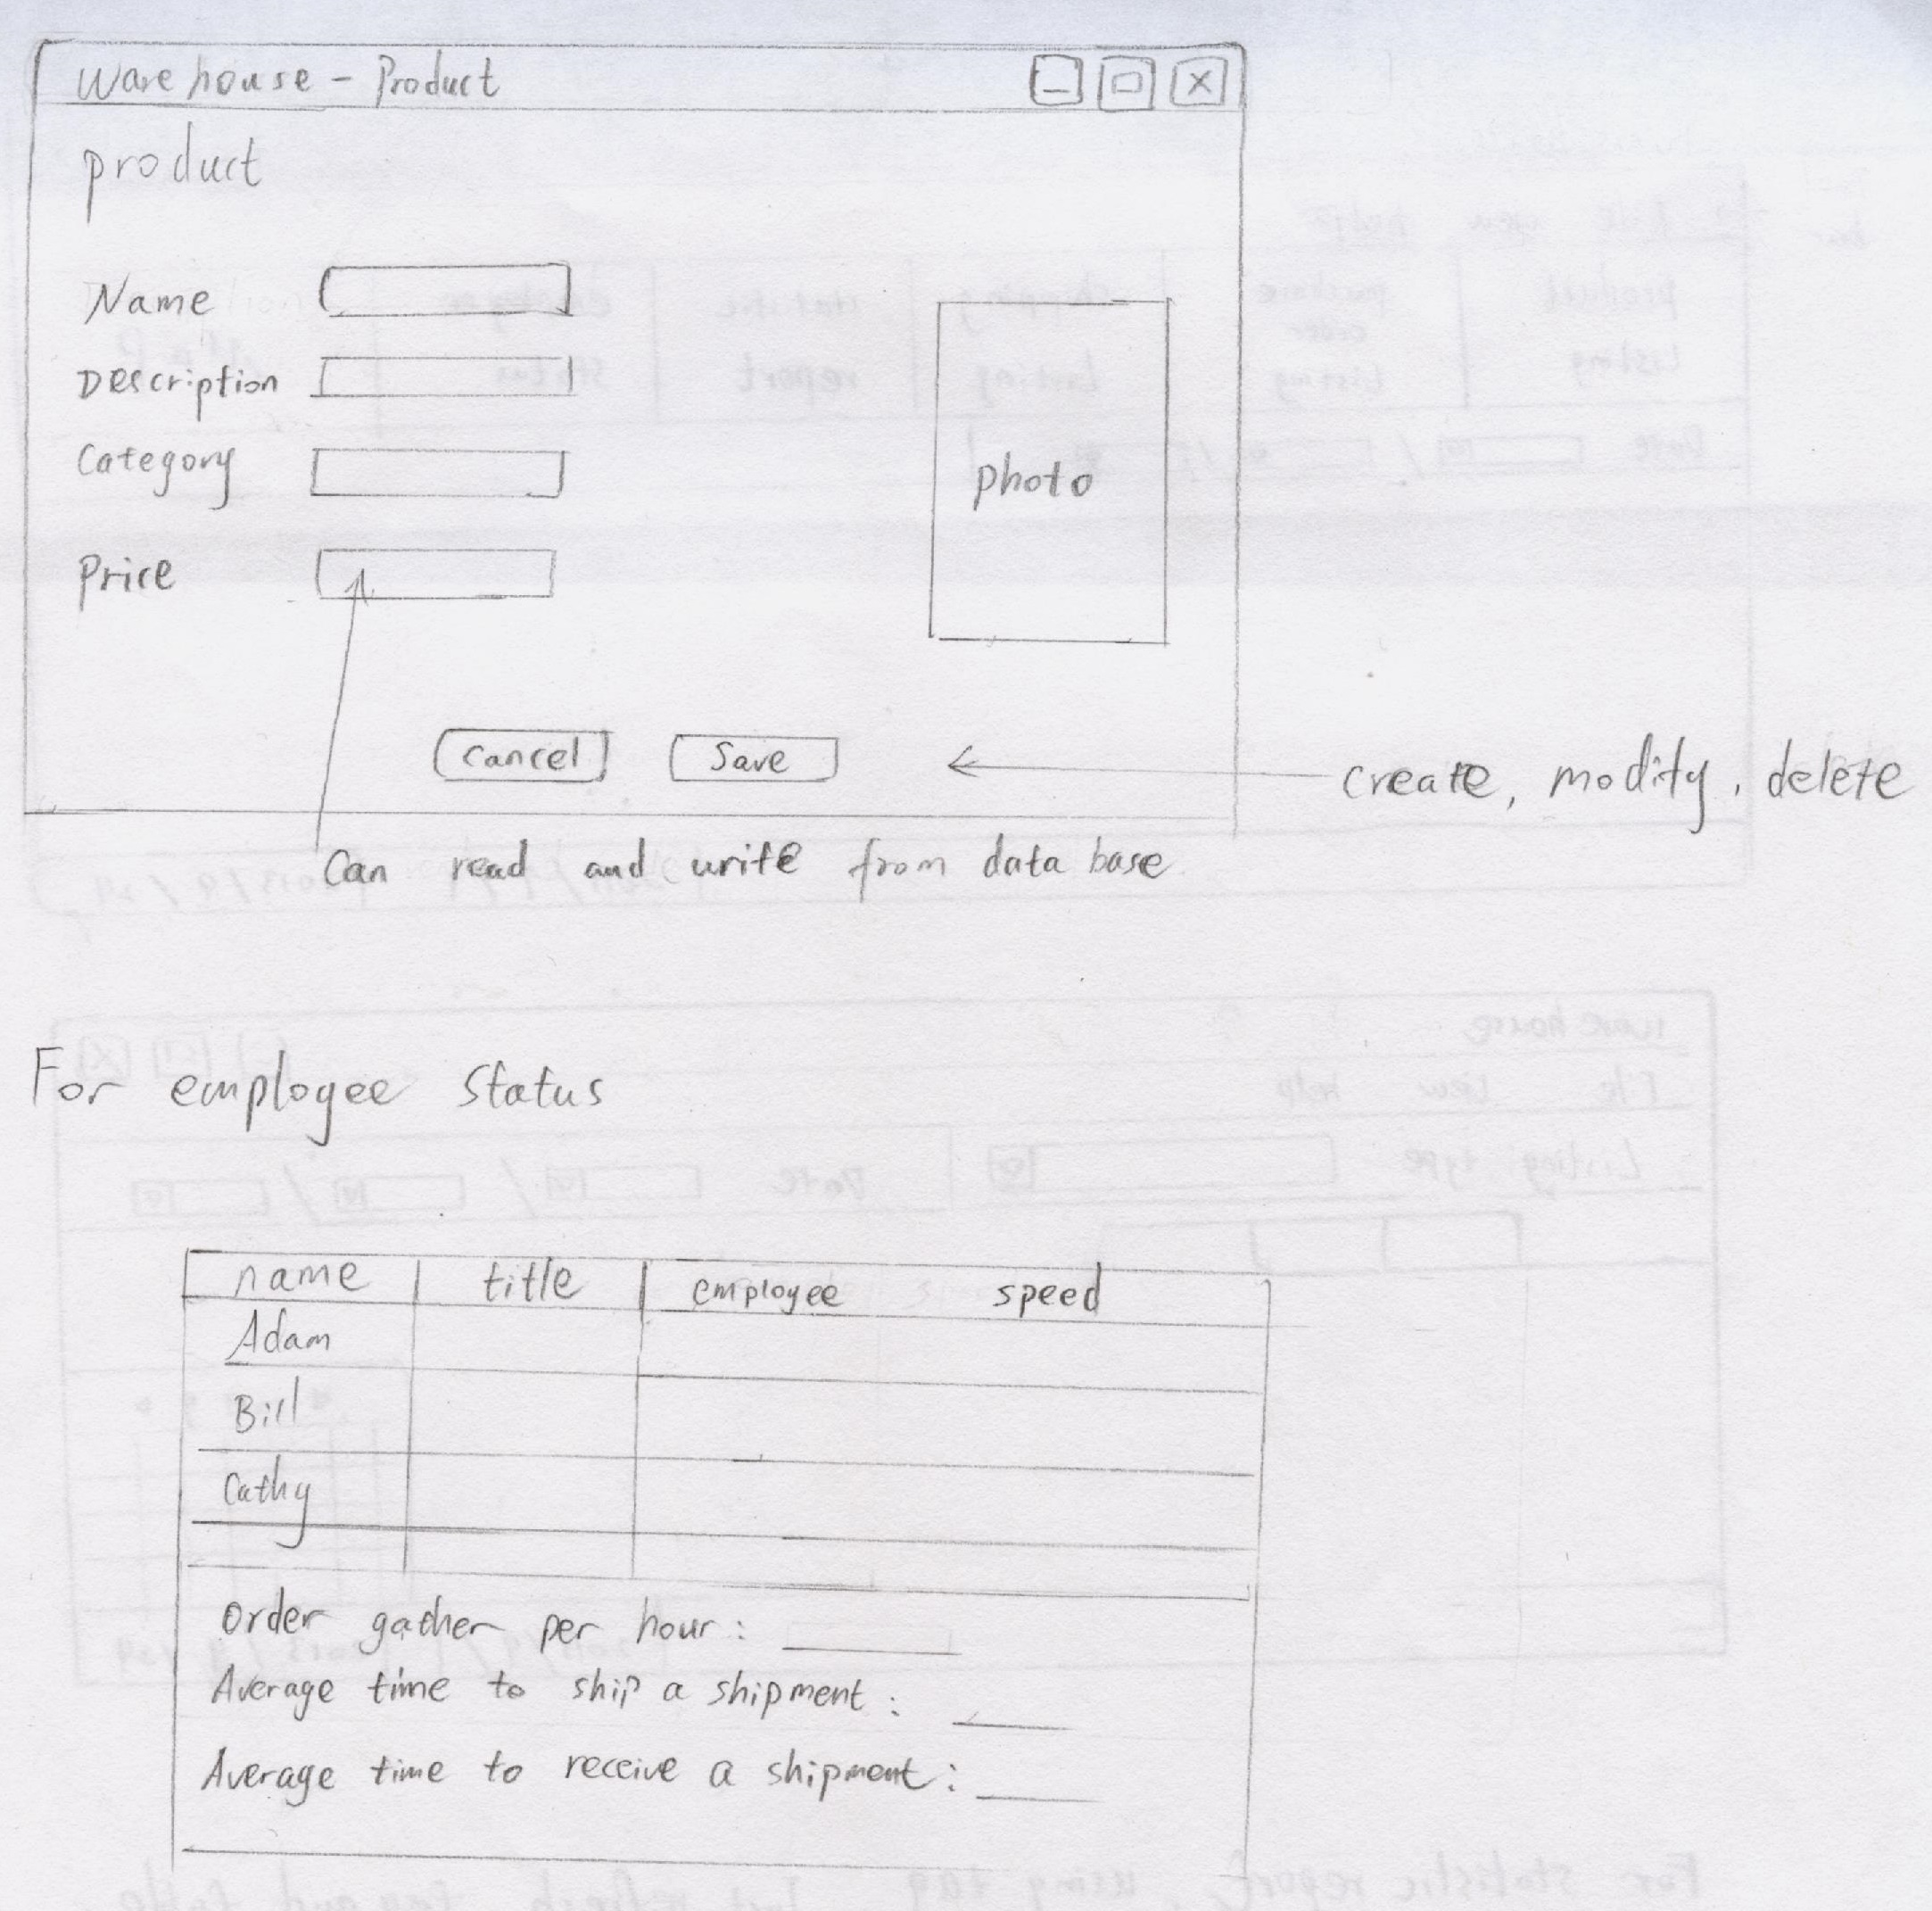 Warehouse - Product
product
Name
Description
Category
Price
photo
Cancel Save
create, modify, delete
Can read and write from data base
For employee Status
name title employee speed
Adam
Bill
Cathy
Order gather per hour:
Average time to ship a shipment:
Average time to receive a shipment: